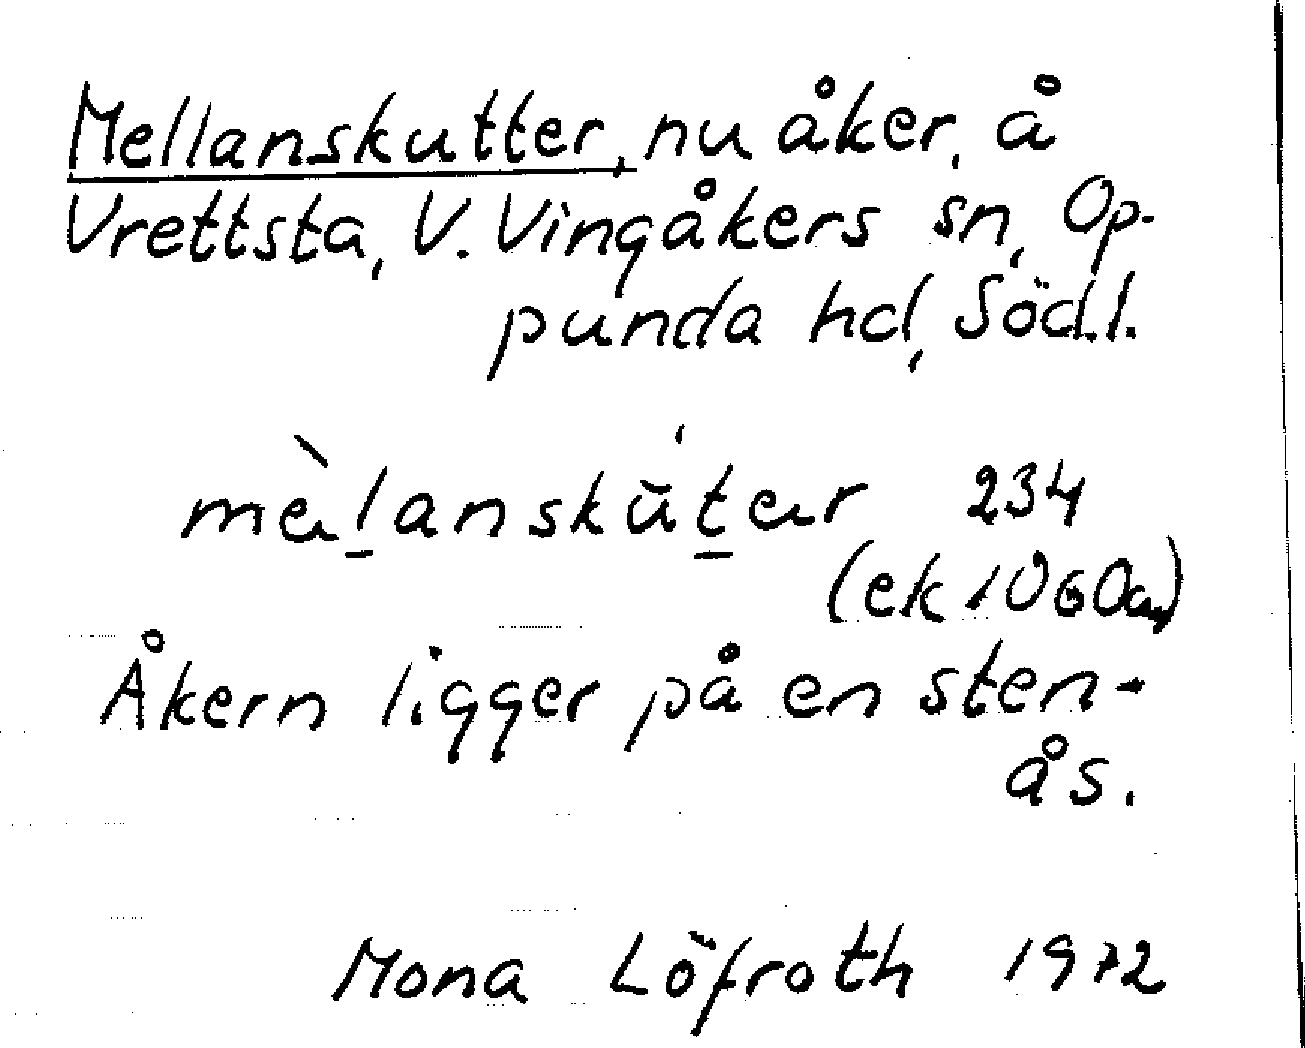 Mellanskutter, nu åker, å
Vrettsta, V. Vingåkers sn, Op-
punda hd, Södl.
mèl̲anskŭt̲ar 234
(ek 1060a)
Åkern ligger på en sten-
ås.
Mona Löfroth 1972